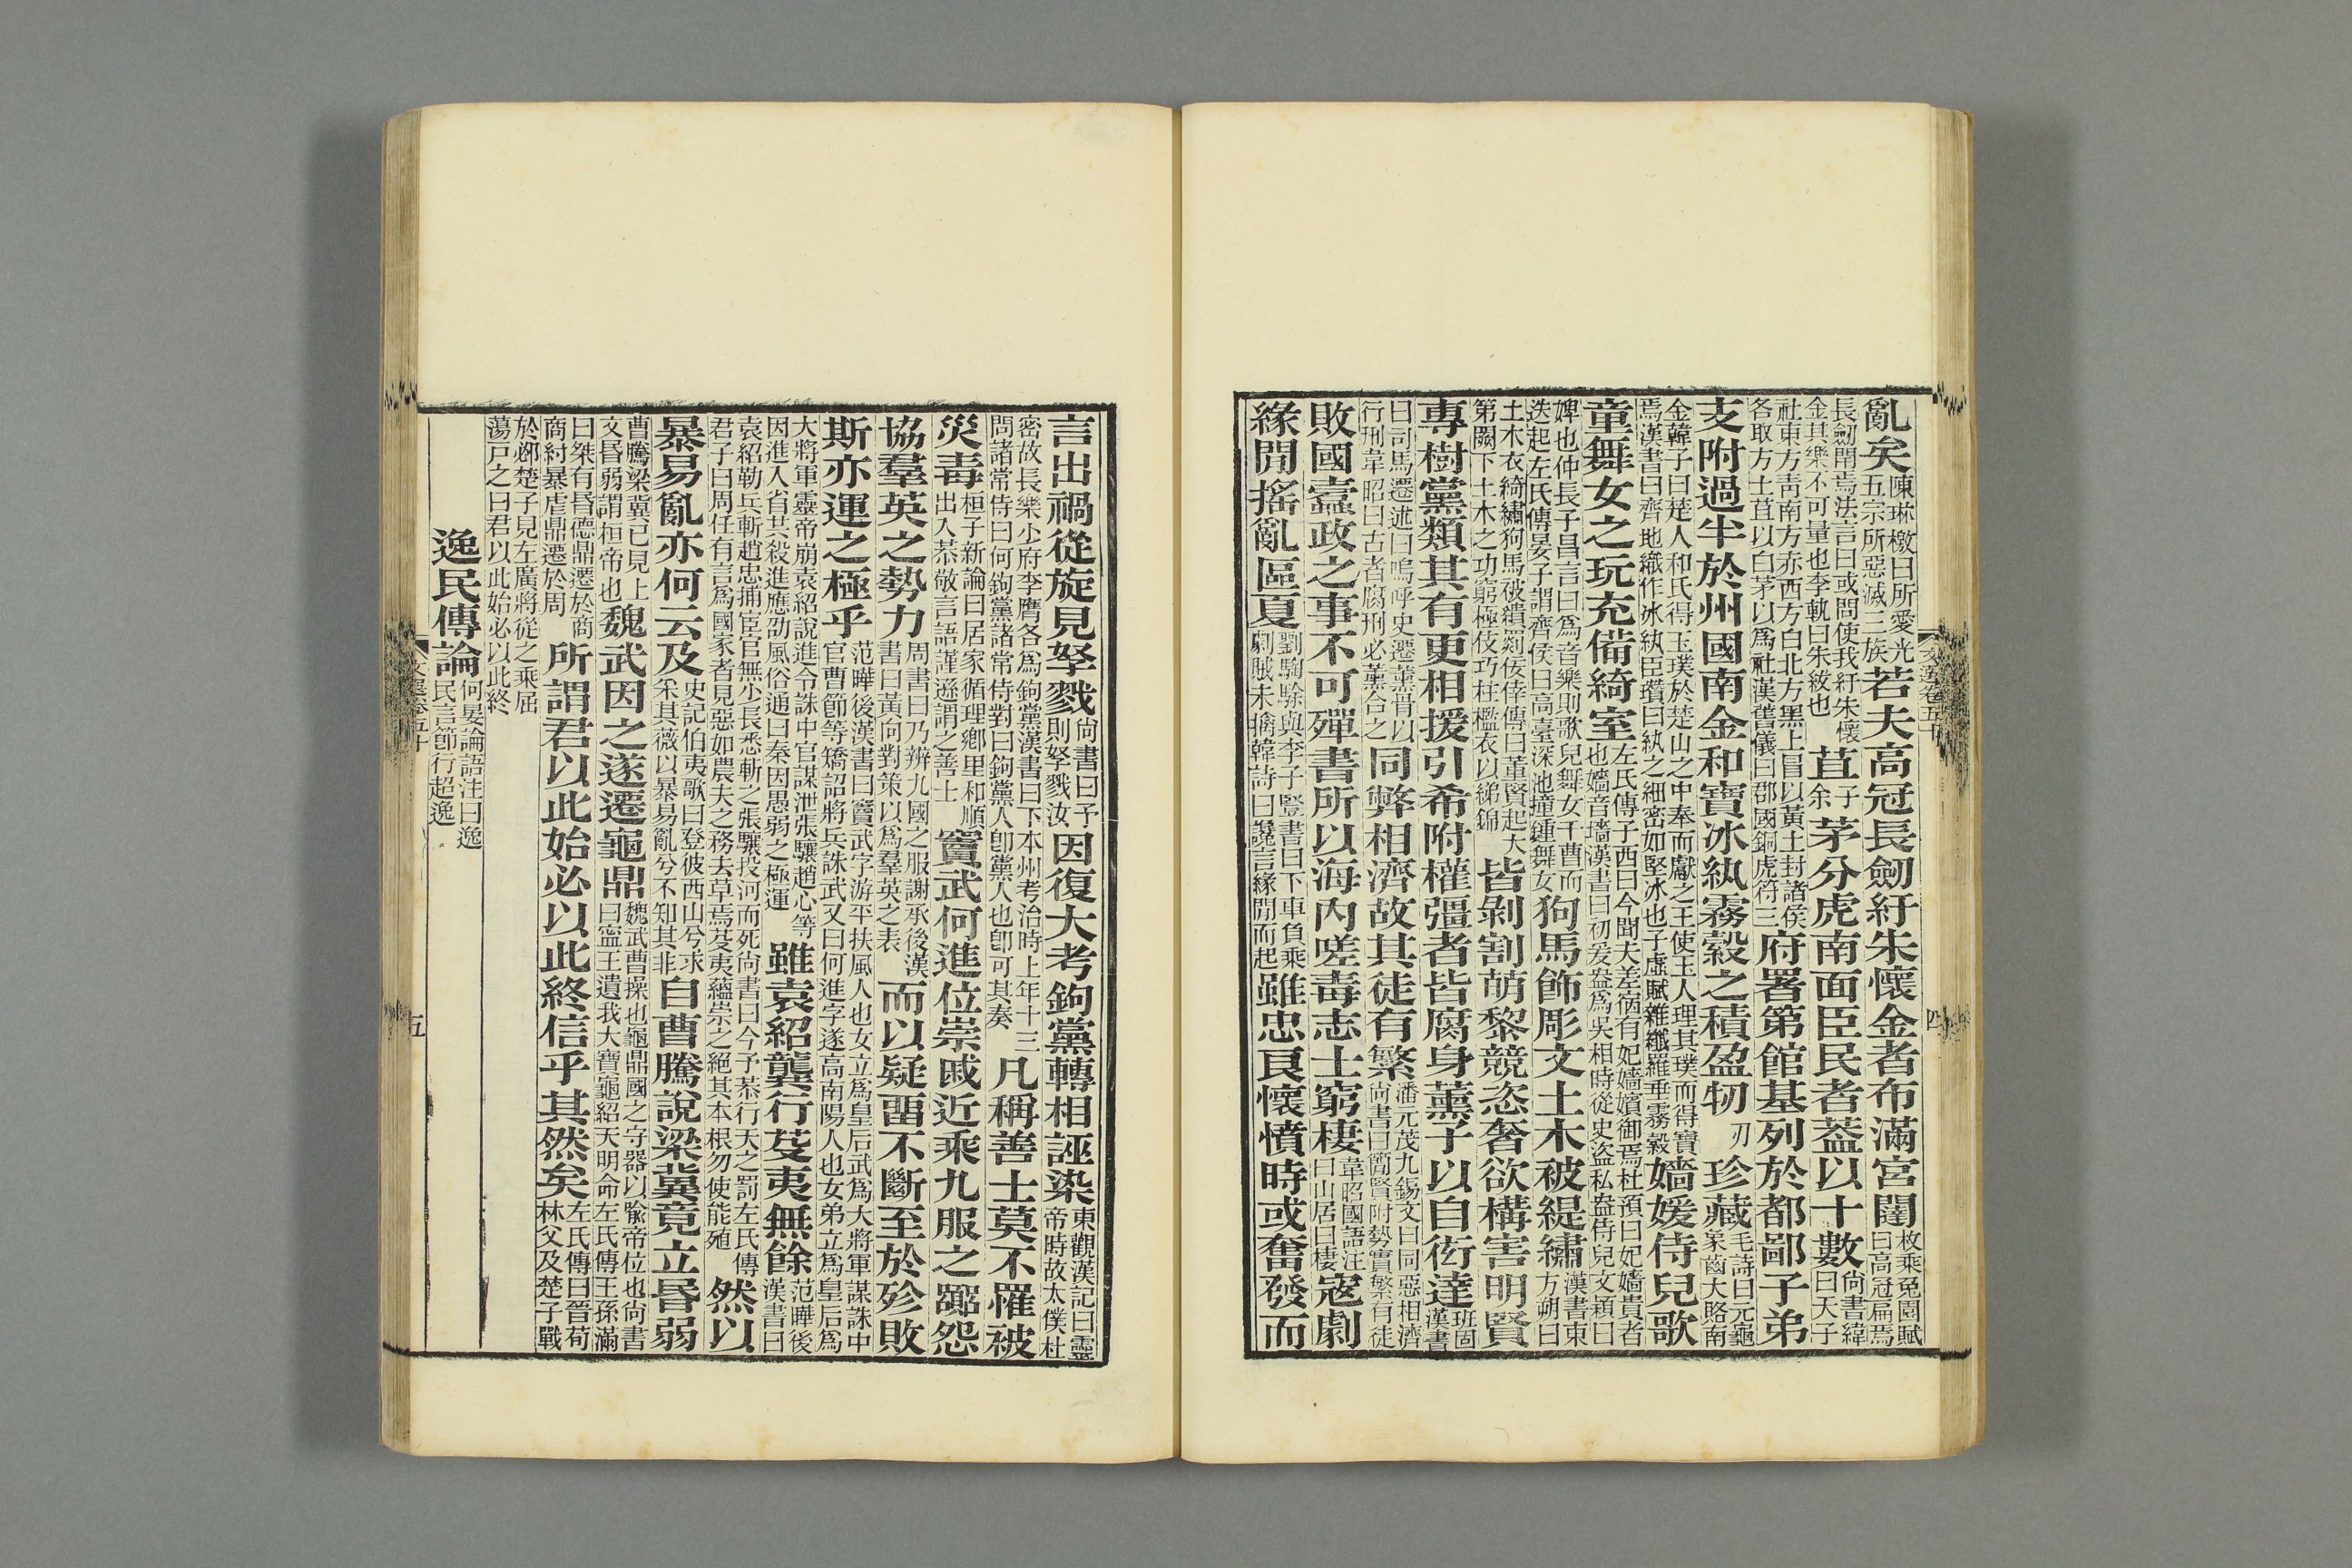 亂矣陳琳檄曰所愛光五宗所惡滅三族若夫高冠長劒紆朱懷金者布滿宮闈枚乘兔園賦曰高冠扁焉
長劒閒焉法言曰或問使我紆朱懷金其樂不可量也李軌曰朱紱也苴子余茅分虎南面臣民者葢以十數尙書緯曰天子
社東方靑南方赤西方白北方黑上冒以黃土封諸侯各取方土苴以白茅以爲社漢舊儀曰郡國銅虎符三府署第館基列於都鄙子弟
支附過半於州國南金和寶冰紈霧縠之積盈牣刃珍藏毛詩曰元龜象齒大賂南
金韓子曰楚人和氏得玉璞於楚山之中奉而獻之王使玉人理其璞而得寶焉漢書曰齊地織作冰紈臣瓚曰紈之細密如堅冰也子虛賦雜纖羅垂霧縠嬙媛侍兒歌
童舞女之玩充備綺室左氏傳子西曰今聞夫差宿有妃嬙嬪御焉杜預曰妃嬙貴者也嬙音墻漢書曰初爰盎爲吳相時從史盜私盎侍兒文穎曰
婢也仲長子昌言曰爲音樂則歌兒舞女千曹而迭起左氏傳晏子謂齊侯曰高臺深池撞鍾舞女狗馬飾彫文土木被緹繡漢書東方朔曰
土木衣綺繡狗馬被繢罽佞倖傳曰董賢起大第闕下土木之功窮極伎巧柱檻衣以綈錦皆剝割萌黎競恣奢欲構害明賢
專樹黨類其有更相援引希附權彊者皆腐身薰子以自衒達班固漢書
曰司馬遷述曰嗚呼史遷薰胥以行刑韋昭曰古者腐刑必薰合之同弊相濟故其徒有繁潘元茂九錫文曰同惡相濟尙書曰簡賢附勢實繁有徒
敗國蠹政之事不可殫書所以海內嗟毒志士窮棲韋昭國語注曰山居曰棲寇劇
緣閒搖亂區夏劉騊駼與李子豎書曰下車負乘劇賊未擒韓詩曰讒言緣閒而起雖忠良懷憤時或奮發而
文選卷五十
四
言出禍從旋見孥戮尙書曰予則孥戮汝因復大考鉤黨轉相誣染東觀漢記曰靈帝時故太僕杜
密故長樂少府李膺各爲鉤黨漢書曰下本州考治時上年十三問諸常侍曰何鉤黨諸常侍對曰鉤黨人卽黨人也卽可其奏凡稱善士莫不罹被
災毒桓子新論曰居家循理鄉里和順出入恭敬言語謹遜謂之善士竇武何進位崇戚近乘九服之囂怨
協羣英之勢力周書曰乃辨九國之服謝承後漢書曰黃向對策以爲羣英之表而以疑畱不斷至於殄敗
斯亦運之極乎范曄後漢書曰竇武字游平扶風人也女立爲皇后武爲大將軍謀誅中官曹節等矯詔將兵誅武又曰何進字遂高南陽人也女弟立爲皇后爲
大將軍靈帝崩袁紹說進令誅中官謀泄張驤趙心等因進入省共殺進應劭風俗通曰秦因愚弱之極運雖袁紹龔行芟夷無餘范曄後漢書曰
袁紹勒兵斬趙忠捕宦官無少長悉斬之張驤投河而死尙書曰今予恭行天之罰左氏傳君子曰周任有言爲國家者見惡如農夫之務去草焉芟夷蘊崇之絕其本根勿使能殖然以
暴易亂亦何云及史記伯夷歌曰登彼西山兮求采其薇以暴易亂兮不知其非自曹騰說梁冀竟立昬弱
曹騰梁冀已見上文昬弱謂桓帝也魏武因之遂遷龜鼎魏武曹操也龜鼎國之守器以喩帝位也尙書曰寍王遺我大寶龜紹天明命左氏傳王孫滿
曰桀有昬德鼎遷於商商紂暴虐鼎遷於周所謂君以此始必以此終信乎其然矣左氏傳曰晉荀林父及楚子戰
於邲楚子見左廣將從之乘屈蕩戸之曰君以此始必以此終
逸民傳論何晏論語注曰逸民言節行超逸
文選卷五十
五